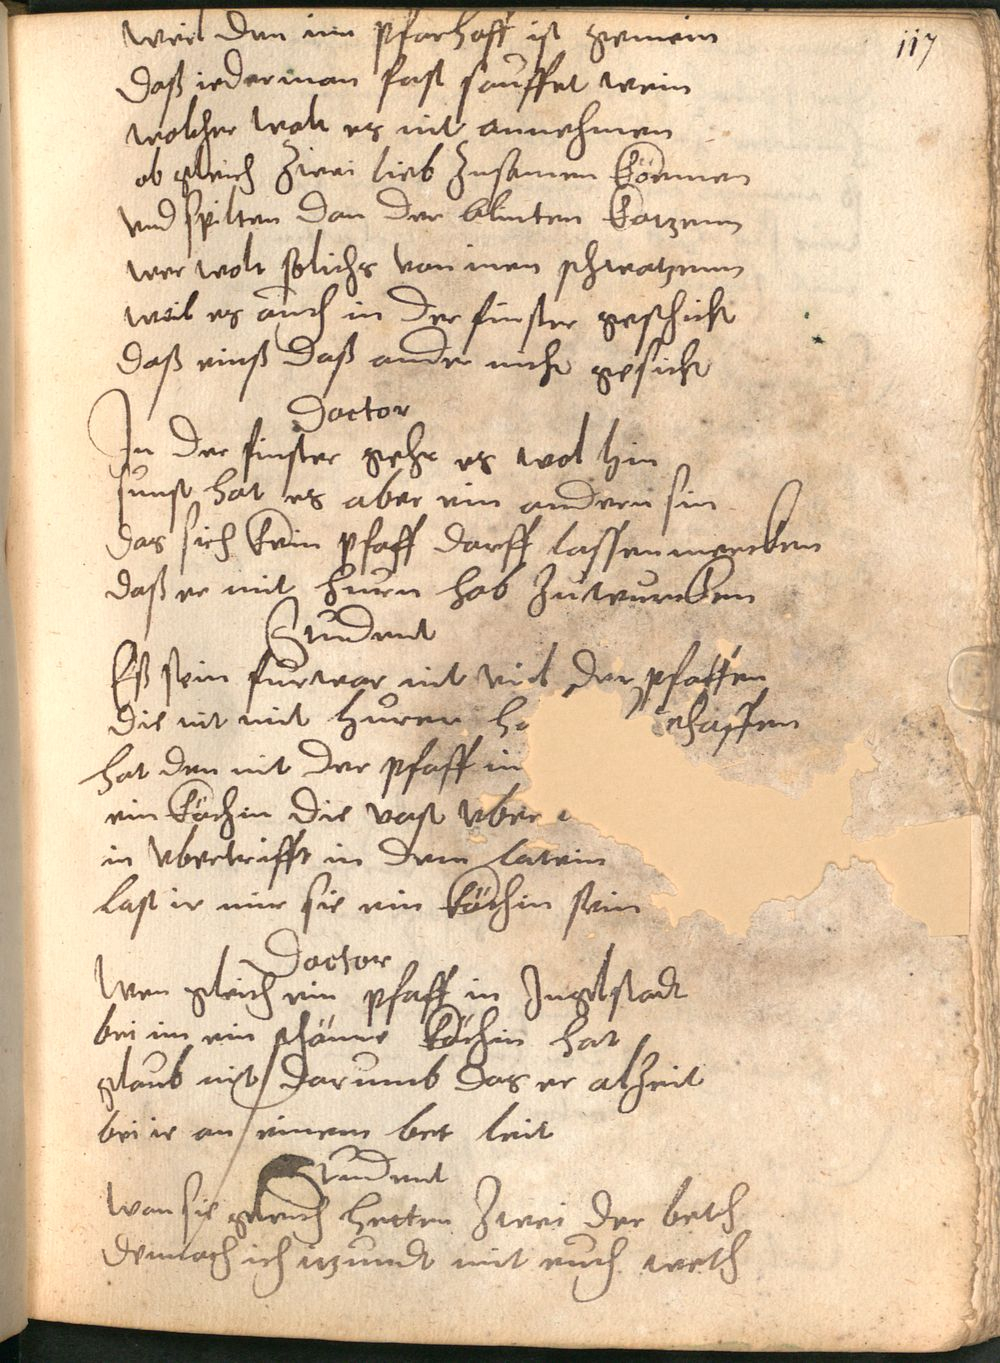 117
weil den im pfarhoff ist gemein
daß iederman fast sauffet wein
welcher wolt es nit annehmen
ob gleich zwei lieb zusamen kömmen
vnd spilten dan der blinten katzenn
wer wolt solichs von inen schwatzenn
weil es auch in der finster geschicht
daß einß daß ander nicht gesicht
Doctor
In der finster geht es wol hin
sunst hat es aber ein andern sin
das sich kein pfaff darff lassen mercken
daß er mit hurn hab zuwurcken
Student
Eß sein furwar nit viel der pfaffen
die nit mit huren schaffen
hat den nit der pfaff in
ein köchin die vast vber
in vbertrifft in dem latein
last ir mir sie ein köchin sein
Doctor
Wen gleich ein pfaff in Ingelstadt
bei im ein schönne köchin hat
glaub nit darumb das er alzeit
bei ir an einem bet leit
Student
Wan sie gleich hetten zwei der beth
demnach ich itzundt mit euch weth